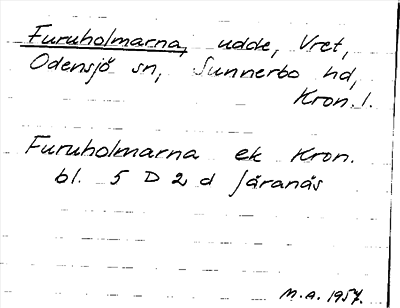 Furuholmarna, udde, Vret,
Odensjö sn, Sunnerbo hd,
Kron. l.
Furuholmarna ek Kron.
bl. 5 D 2 d Järanäs
M.A. 1957.